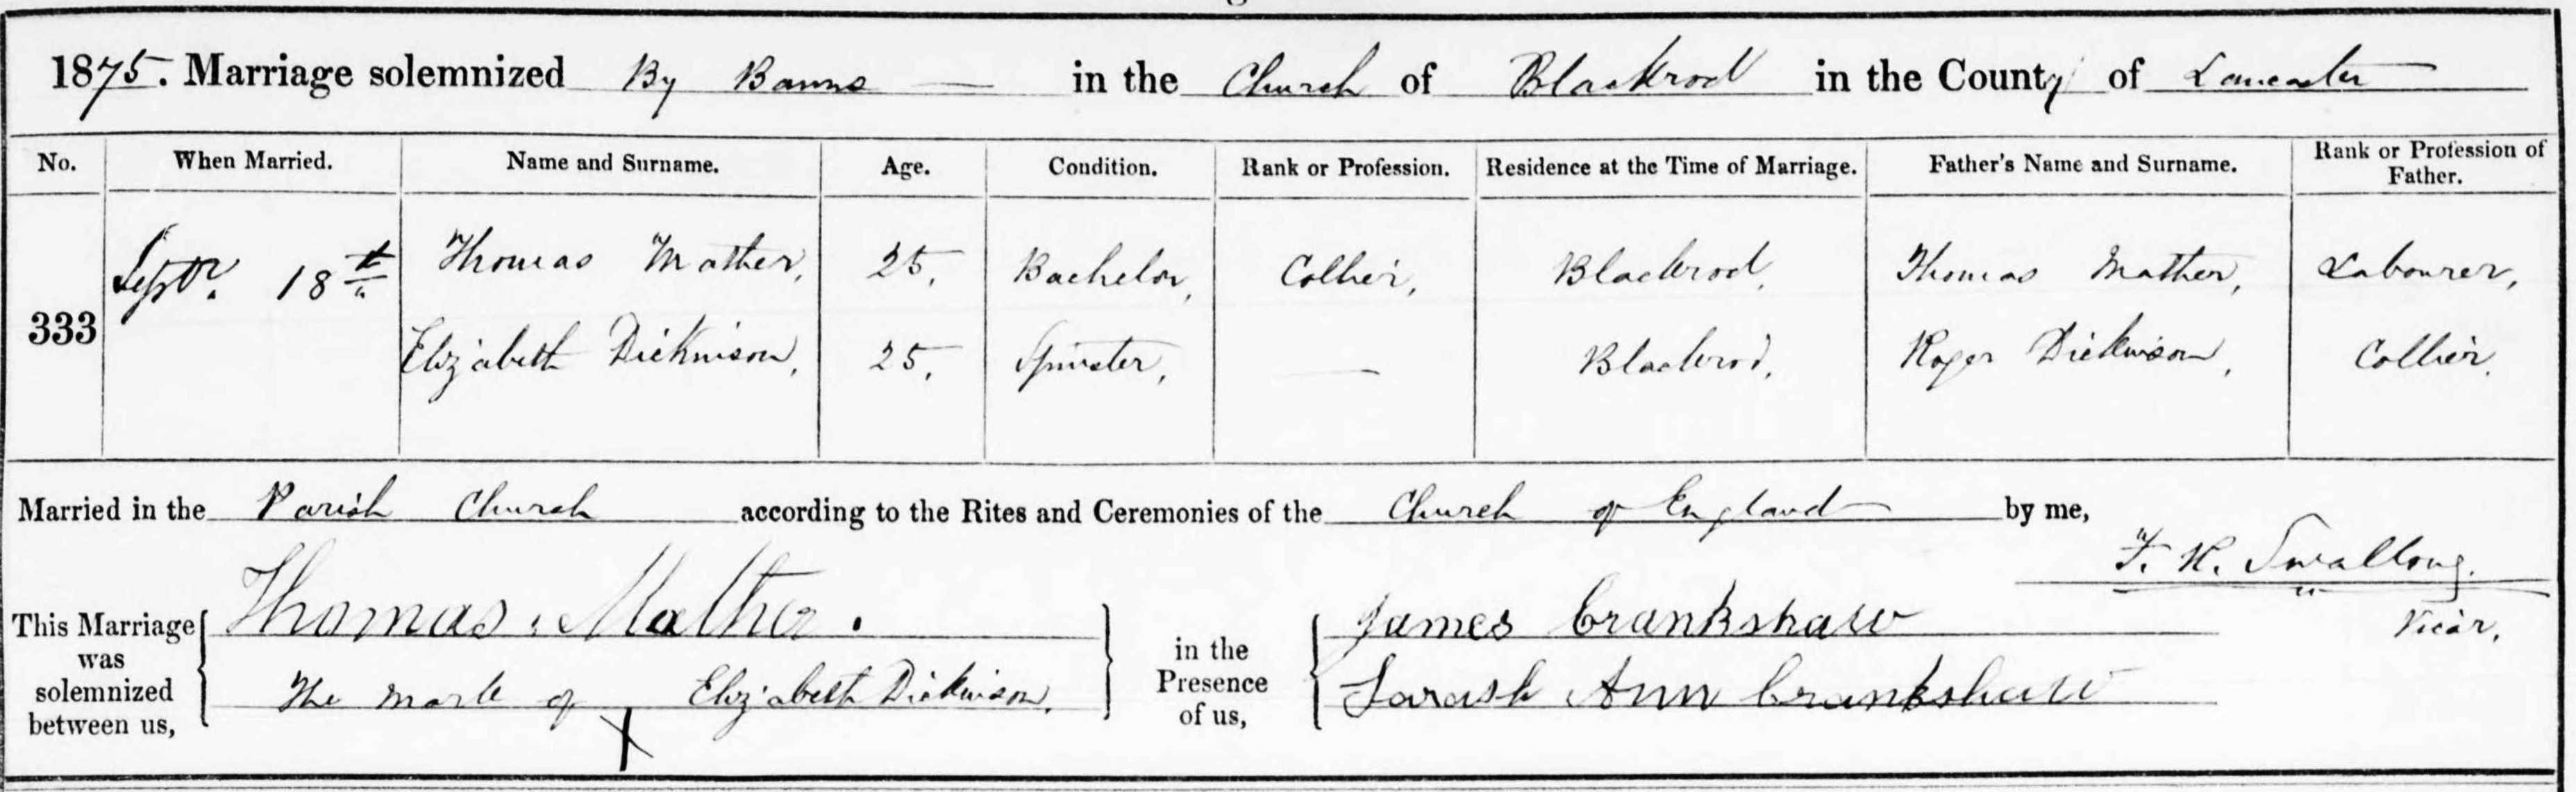 1875. Marriage solemnized By Banns — in the Church of Blackrod in the County of Lancaster
No. When Married. Name and Surname. Age. Condition. Rank or Profession. Residence at the Time of Marriage. Father's Name and Surname. Rank or Profession of Father.
Septr. 18th Thomas Mather, 25, Bachelor, Collier, Blackrod, Thomas Mather, Labourer,
333
Elizabeth Dickinson, 25, Spinster, — Blackrod, Roger Dickinson, Collier.
Married in the Parish Church according to the Rites and Ceremonies of the Church of England by me,
F. H. Swallow,
Vicar.
This Marriage was solemnized between us,
Thomas Mather.
The mark of X Elizabeth Dickinson.
in the Presence of us,
James Crankshaw
Sarah Ann Crankshaw